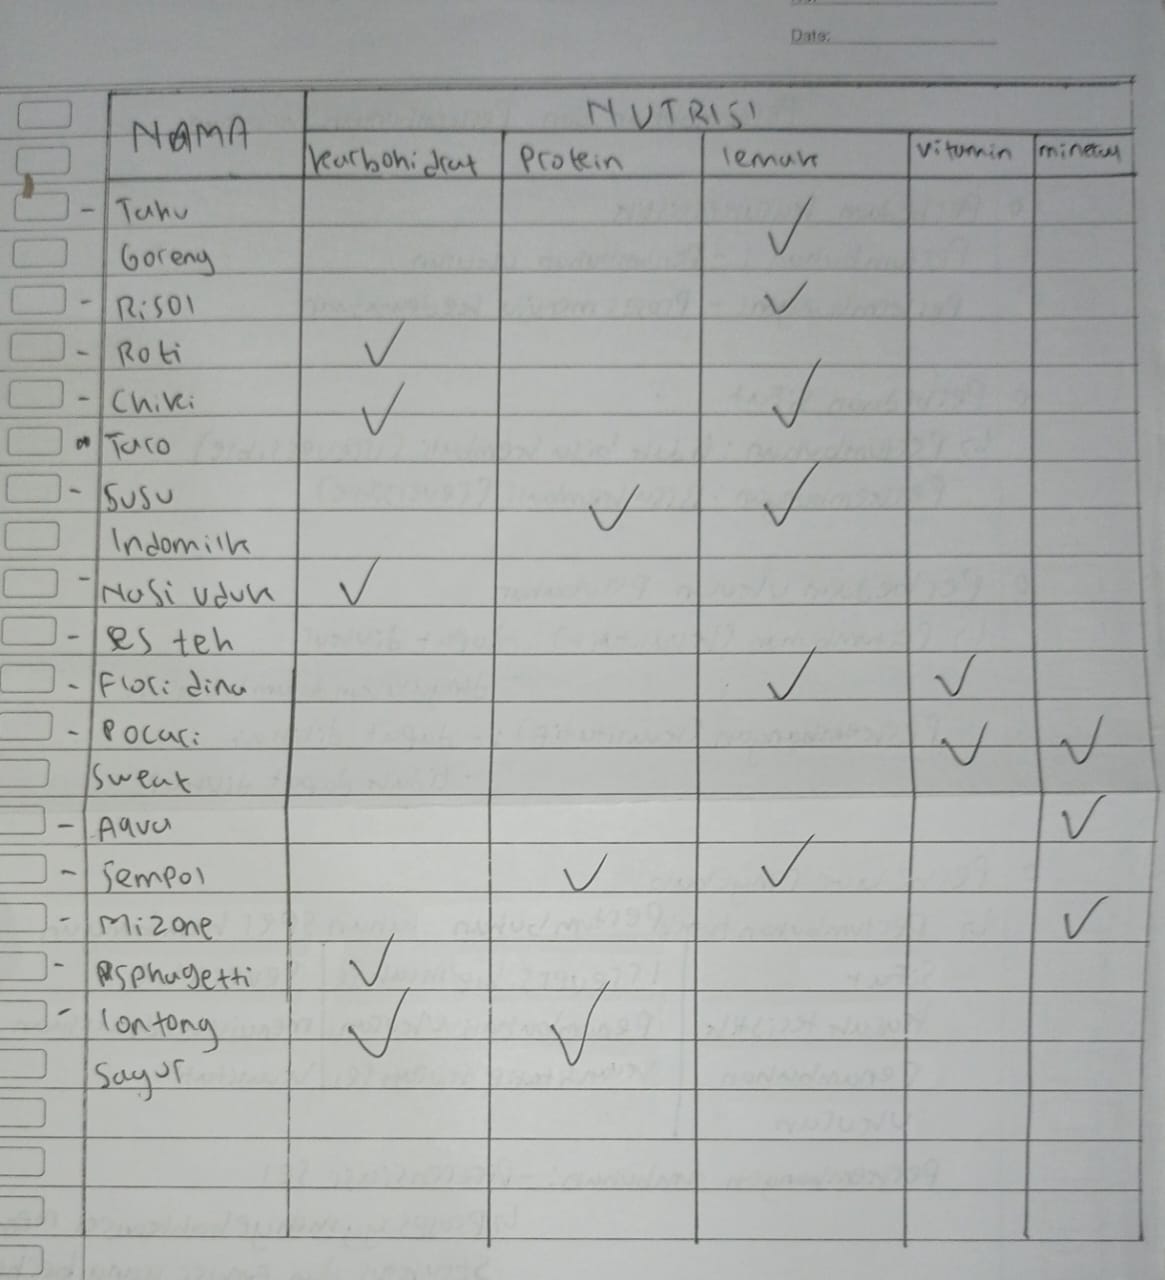 Date:
NAMA NUTRISI
karbohidrat Protein lemak vitamin mineral
- Tahu
Goreng ✓
- Risol ✓
- Roti ✓
- Chiki ✓ ✓
Taro
- Susu ✓ ✓
Indomilk
- Nasi uduk ✓
- es teh
- Floridina ✓ ✓
- Pocari ✓ ✓
Sweat
- Aqua ✓
- Sempol ✓ ✓
- Mizone ✓
- sphagetti ✓
- lontong ✓ ✓
Sayur